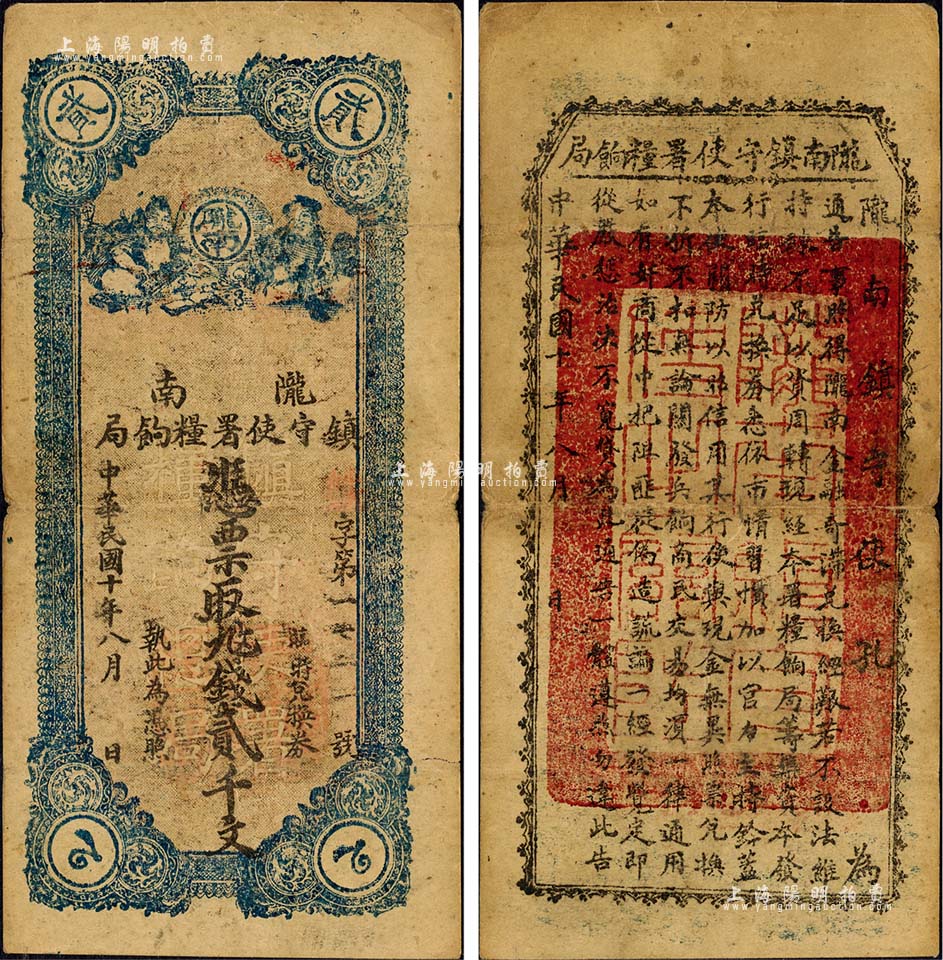 上海陽明拍賣
www.yangmingauction.com
貳
貳
隴南
隴南
鎮守使署糧餉局
字第一 二一一號
臨時兌換券
憑票取九錢貳千文
執此為憑照
中華民國十年八月 日
2
2
隴南鎮守使署糧餉局
隴南鎮守使孔 為
通告事照得隴南金融奇滯兌換艱若不設法維
持 不足以資周轉現經本署糧餉局籌集資本發
行臨時兌換券悉依市情習慣加以官 鈐蓋
本 關防以作信用其行使與現金無異照票兌換
不折不扣無論關發兵餉商民交易均須一律通用
如有奸商從中把阻匪徒偽造 一經發覺定即
從嚴懲治決不寬貸為此通告一體遵照勿違此告
中華民國十年八月 日
上海陽明拍賣
www.yangmingauction.com
上海陽明拍賣
www.yangmingauction.com